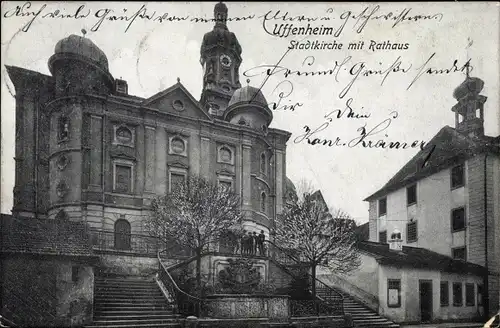 Auch viele Grüße von meinen Eltern u Geschwistern.
Uffenheim
Stadtkirche mit Rathaus
Freundl. Grüße sendet
dir Dein
Hans Krämer.